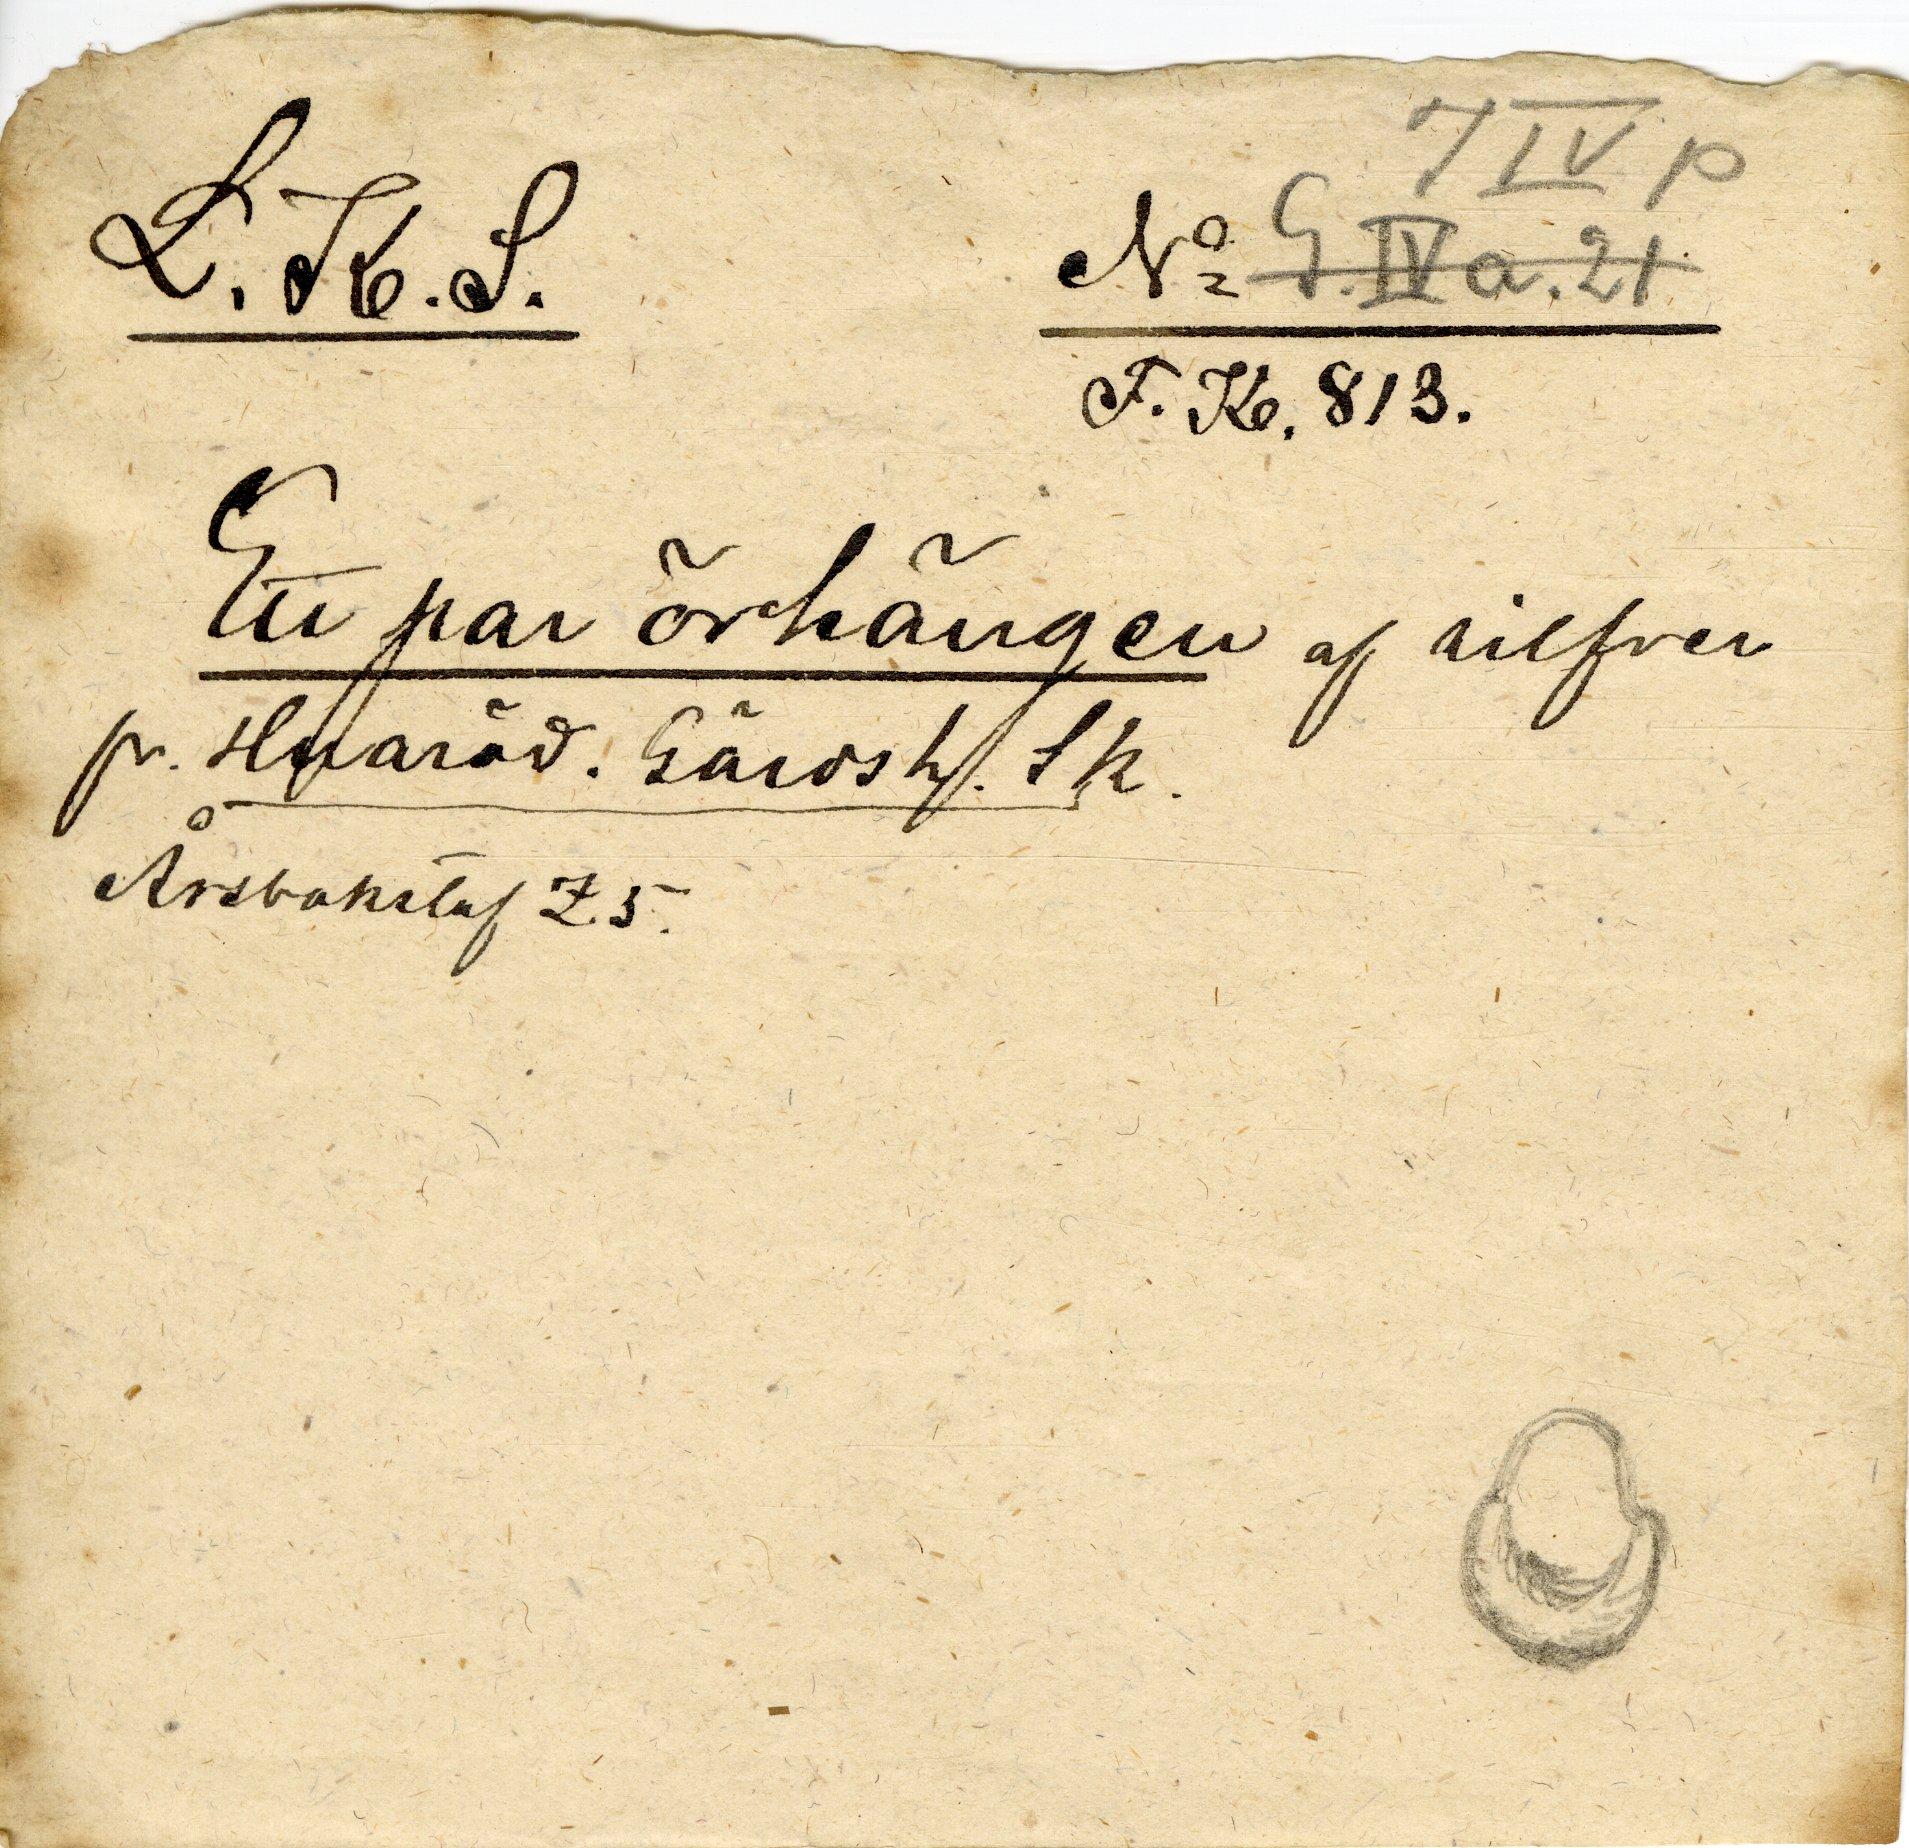 7 IV p
L. K. S. Nº G. IV a. 21
F. K. 813.
Ett par örhängen af silfver
fr. Huaröd. Gärdsh. Sk.
Årsbokstaf Z. 5.